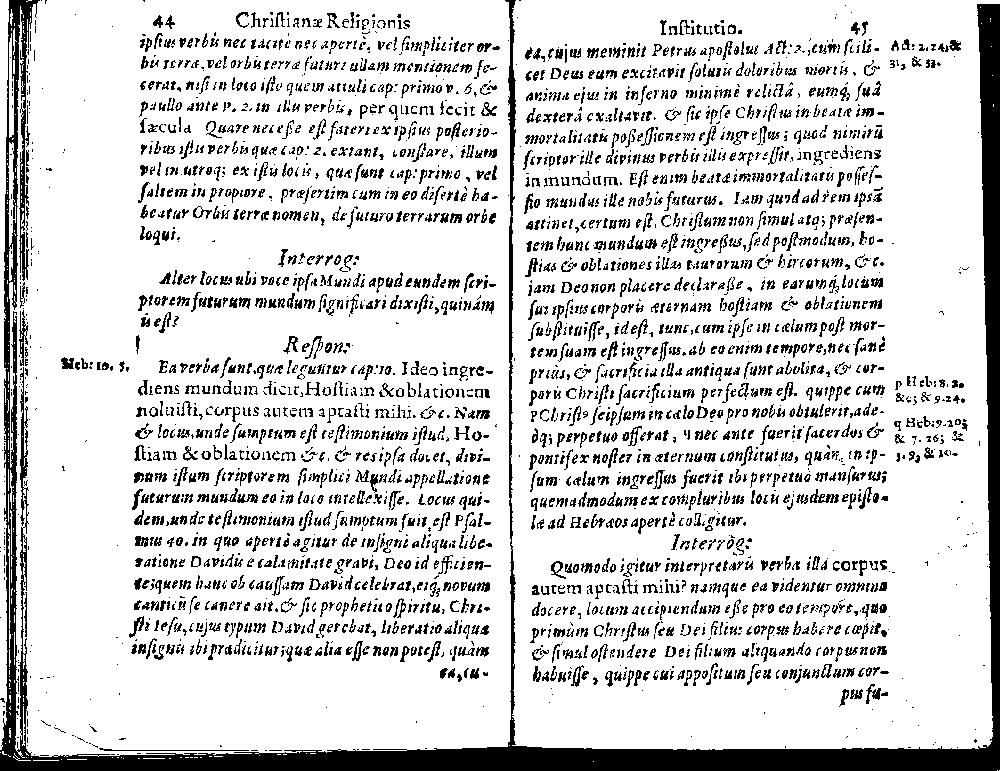 44 Christianæ Religionis
ipsius verbis nec tacitè nec apertè, vel simpliciter or-
bis terræ, vel orbis terræ futuri ullam mentionem fe-
cerat, nisi in loco isto quem attuli cap: primo v. 6, &
paullo ante v. 2. in illis verbis, per quem fecit &
sæcula Quare necesse est fateri ex ipsius posterio-
ribus istis verbis quæ cap: 2. extant, constare, illum
vel in utroq; ex istis locis, quæ sunt cap: primo, vel
saltem in propiore, præsertim cum in eo disertè ha-
beatur Orbis terræ nomen, de futuro terrarum orbe
loqui.
Interrog:
Alter locus ubi voce ipsa Mundi apud eundem scri-
ptorem futurum mundum significari dixisti, quinam
is est?
Respon:
Heb: 10. 5.
Ea verba sunt, quæ leguntur cap: 10. Ideo ingre-
diens mundum dicit, Hostiam & oblationem
noluisti, corpus autem aptasti mihi. &c. Nam
& locus, unde sumptum est testimonium istud, Ho-
stiam & oblationem &c. & res ipsa docet, divi-
num istum scriptorem simplici Mundi appellatione
futurum mundum eo in loco intellexisse. Locus qui-
dem, unde testimonium istud sumptum fuit, est Psal-
mus 40. in quo apertè agitur de insigni aliqua libe-
ratione Davidis e calamitate gravi, Deo id efficien-
te; quem hanc ob caussam David celebrat, eiq́; novum
canticũ se canere ait. & sic prophetico spiritu, Chri-
sti Iesu, cujus typum David gerebat, liberatio aliqua
insignis ibi prædicitur; quæ alia esse non potest, quàm
ea, cu-
Institutio. 45
ea, cujus meminit Petrus apostolus Act: 2., cum scili-
cet Deus eum excitavit solutis doloribus mortis, &
Act: 2. 24, &
31, & 33.
anima ejus in inferno minimè relictâ, eumq́; suâ
dexterâ exaltavit. & sic ipse Christus in beatæ im-
mortalitatis possessionem est ingressus; quod nimirũ
scriptor ille divinus verbis illis expressit, ingrediens
in mundum. Est enim beatæ immortalitatis posses-
sio mundus ille nobis futurus. Iam quod ad rem ipsã
attinet, certum est, Christum non simul atq; præsen-
tem hunc mundum est ingressus, sed postmodum, ho-
stias & oblationes illas taurorum & hircorum, &c.
jam Deo non placere declarasse, in earumq́; locum
sui ipsius corporis æternam hostiam & oblationem
substituisse, id est, tunc, cum ipse in cælum post mor-
tem suam est ingressus. ab eo enim tempore, nec sanè
priùs, & sacrificia illa antiqua sunt abolita, & cor-
poris Christi sacrificium perfectum est. quippe cum
p Heb: 8. 2.
&c; & 9. 24.
p Christus seipsum in cælo Deo pro nobis obtulerit, ade-
òq; perpetuo offerat, q nec ante fuerit sacerdos &
q Heb: 9. 20;
& 7. 26; &
5. 9, & 10.
pontifex noster in æternum constitutus, quàm in ip-
sum cælum ingressus fuerit ibi perpetuò mansurus;
quemadmodum ex compluribus locis ejusdem episto-
læ ad Hebræos apertè colligitur.
Interrog:
Quomodo igitur interpretaris verba illa corpus
autem aptasti mihi? namque ea videntur omnino
docere, locum accipiendum esse pro eo tempore, quo
primùm Christus seu Dei filius corpus habere cœpit,
& simul ostendere Dei filium aliquando corpus non
habuisse, quippe cui appositum seu conjunctum cor-
pus fu-